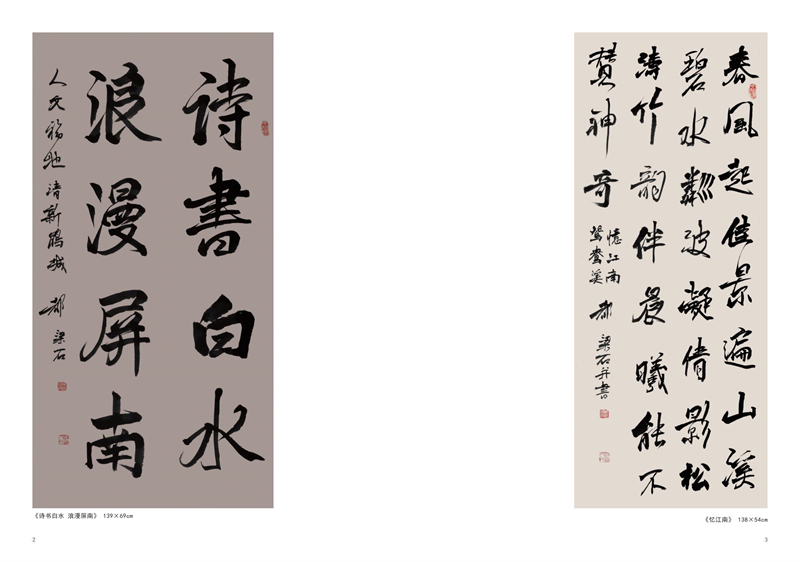 诗書白水
浪漫屏南
人文福地 清新城 都梁石
《诗书白水 浪漫屏南》 139×69cm
2
春風起佳景遍山溪
碧水粼波凝倩影松
濤竹韵伴晨曦能不
賛神奇
憶江南
鴛鴦溪 都梁石并書
《忆江南》 138×54cm
3